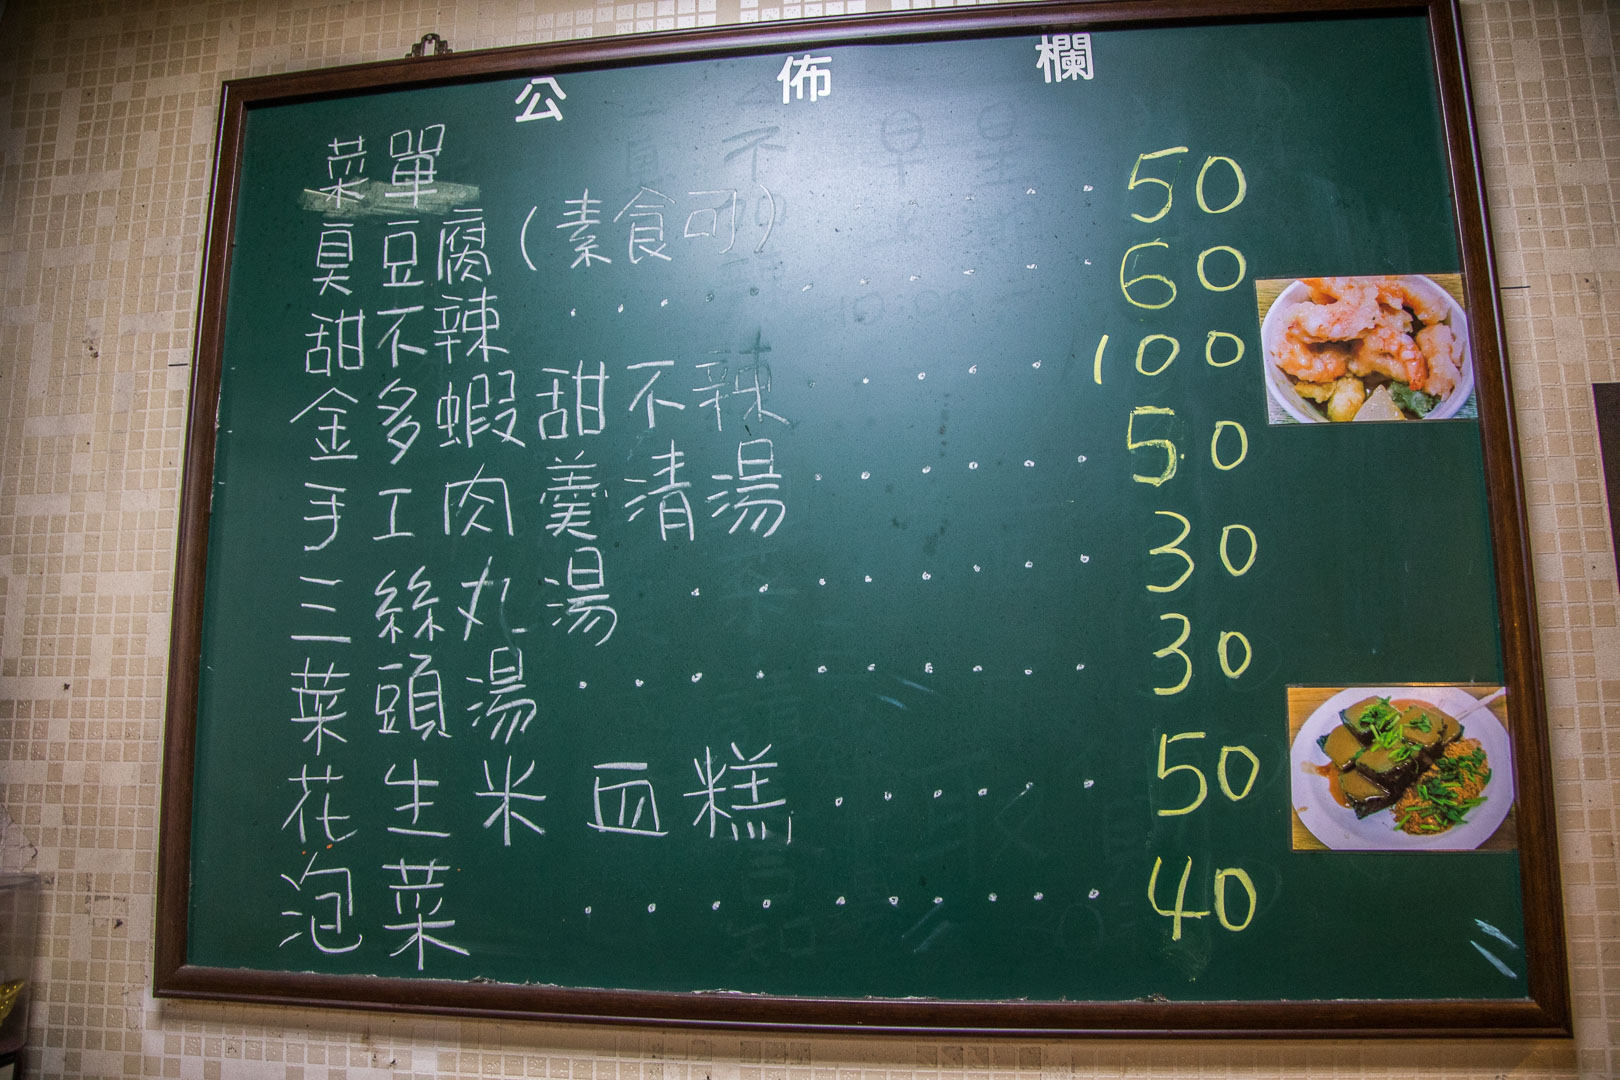 公佈欄
菜單
臭豆腐(素食可) 50
甜不辣 60
金多蝦甜不辣 100
手工肉羹清湯 50
三絲丸湯 30
菜頭湯 30
花生米血糕 50
泡菜 40